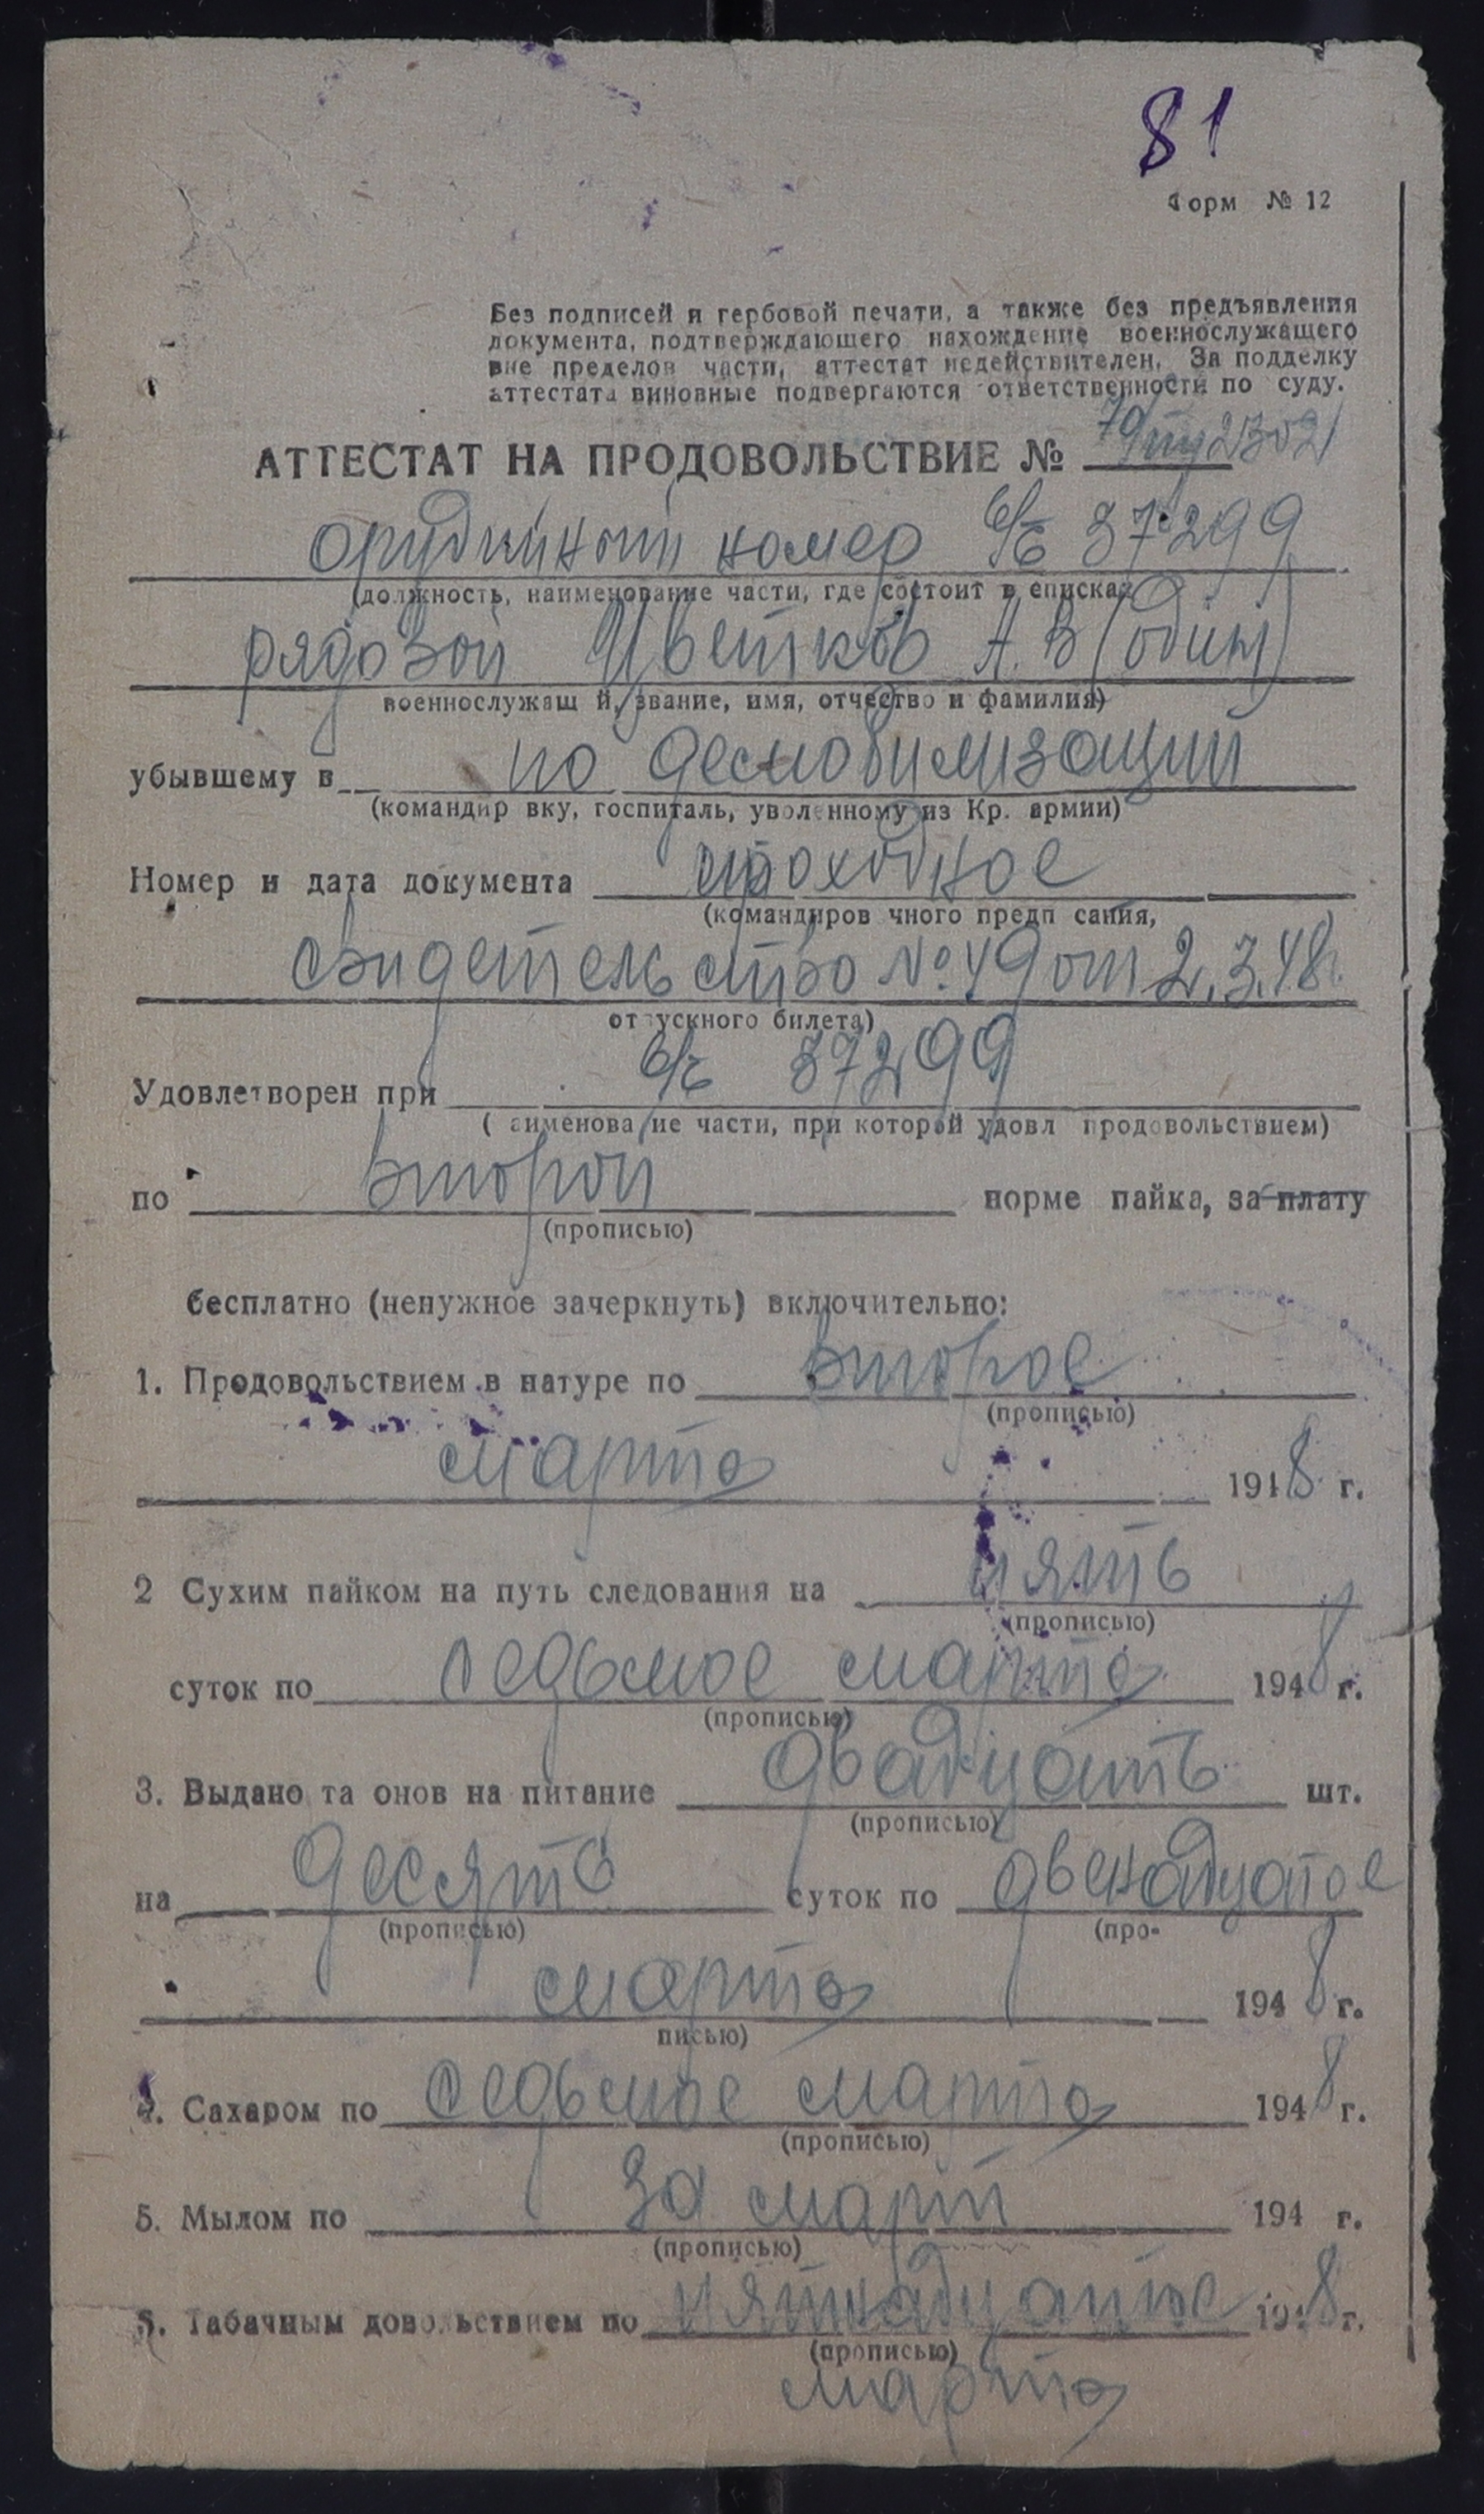 81
Форм № 12
Без подписей и гербовой печати, а также без предъявления
документа, подтверждающего нахождение военнослужащего
вне пределов части, аттестат недействителен. За подделку
аттестата виновные подвергаются ответственности по суду.
АТТЕСТАТ НА ПРОДОВОЛЬСТВИЕ №
орудийный номер в/ч 37299
(должность, наименование части, где состоит в списках
рядовой Цветков А. В (один)
военнослужащ й, звание, имя, отчество и фамилия)
убывшему в по демобилизации
(командир вку, госпиталь, уволенному из Кр. армии)
Номер и дата документа проходное
(командиров чного предп сания,
свидетельство № 49 от 2.3.48г.
отпускного билета)
Удовлетворен при в/ч 37299
( аименова ие части, при которой удовл продовольствием)
по второй норме пайка, за плату
(прописью)
бесплатно (ненужное зачеркнуть) включительно:
1. Продовольствием в натуре по второе
(прописью)
марта 1948 г.
2 Сухим пайком на путь следования на пять
(прописью)
суток по седьмое марта 1948 г.
(прописью)
3. Выдано та онов на питание двадцать шт.
(прописью)
на десять суток по двенадцатое
(прописью) (про-
марта 1948 г.
писью)
4. Сахаром по седьмое марта 1948 г.
(прописью)
5. Мылом по за март 194 г.
(прописью)
5. Табачным довольствием по пятнадцатое 1948 г.
(прописью)
марта